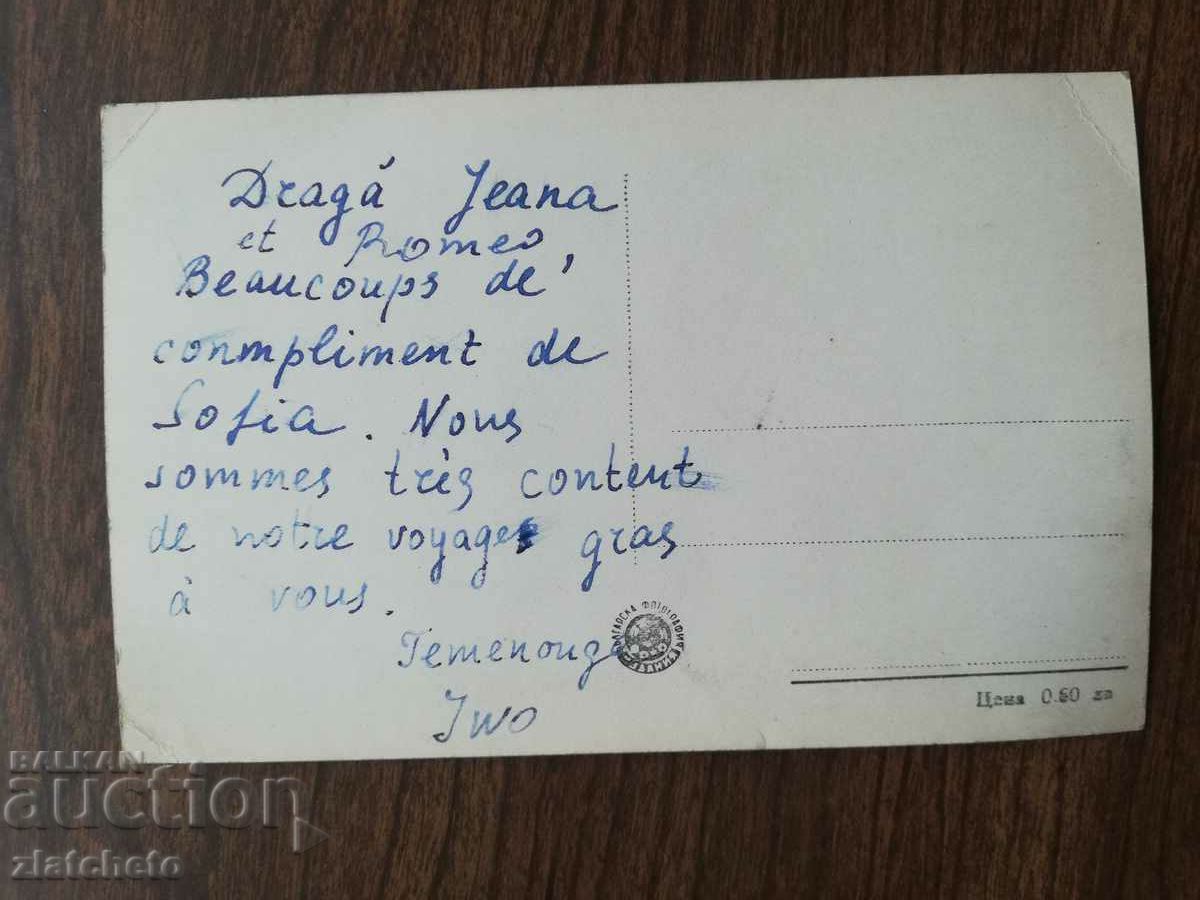 Dragă Jeana
et Romeo,
Beaucoups de
conmpliment de
Sofia. Nous
sommes très content
de notre voyage gras
à vous.
Temenouga
Iwo
Цена 0.80 лв
BALKAN
auction
zlatcheto